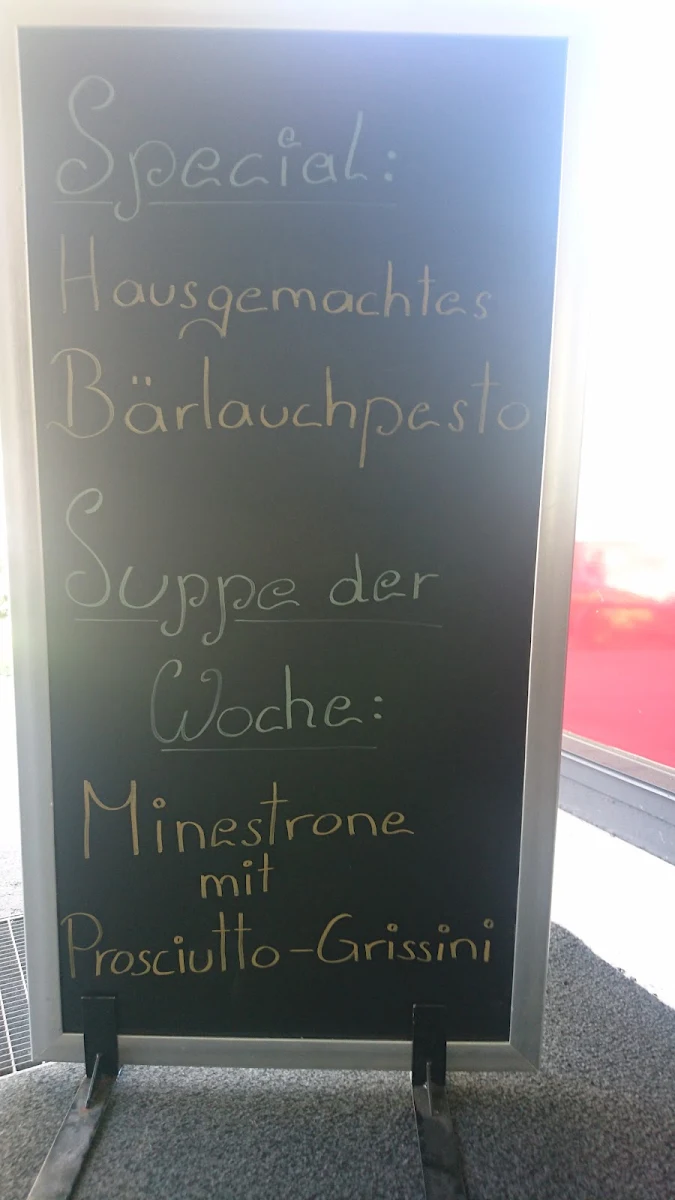 Special:
Hausgemachtes
Bärlauchpesto
Suppe der
Woche:
Minestrone
mit
Prosciutto-Grissini